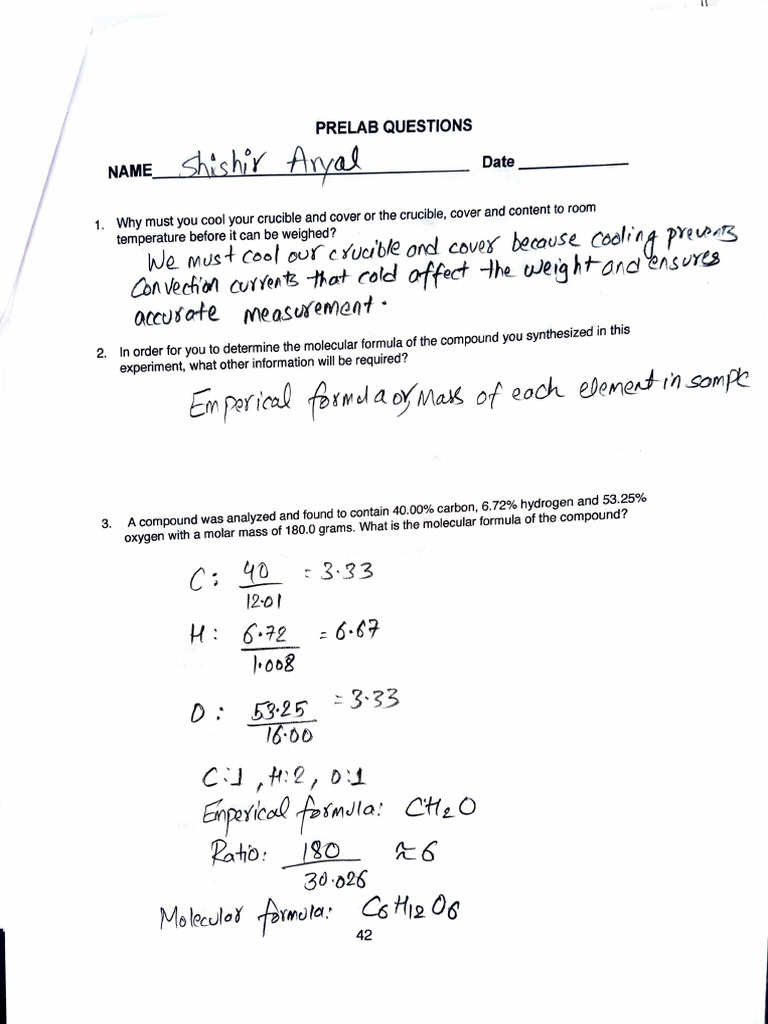 PRELAB QUESTIONS
NAME Shishir Aryal Date
1. Why must you cool your crucible and cover or the crucible, cover and content to room
temperature before it can be weighed?
We must cool our crucible and cover because cooling prevents
convection currents that cold affect the weight and ensures
accurate measurement.
2. In order for you to determine the molecular formula of the compound you synthesized in this
experiment, what other information will be required?
Emperical formula or, Mass of each element in sample
3. A compound was analyzed and found to contain 40.00% carbon, 6.72% hydrogen and 53.25%
oxygen with a molar mass of 180.0 grams. What is the molecular formula of the compound?
C: 40 = 3.33
12.01
H: 6.72 = 6.67
1.008
O: 53.25 = 3.33
16.00
C:1, H:2, O:1
Emperical formula: CH2O
Ratio: 180 ≈ 6
30.026
Molecular formula: C6H12O6
42